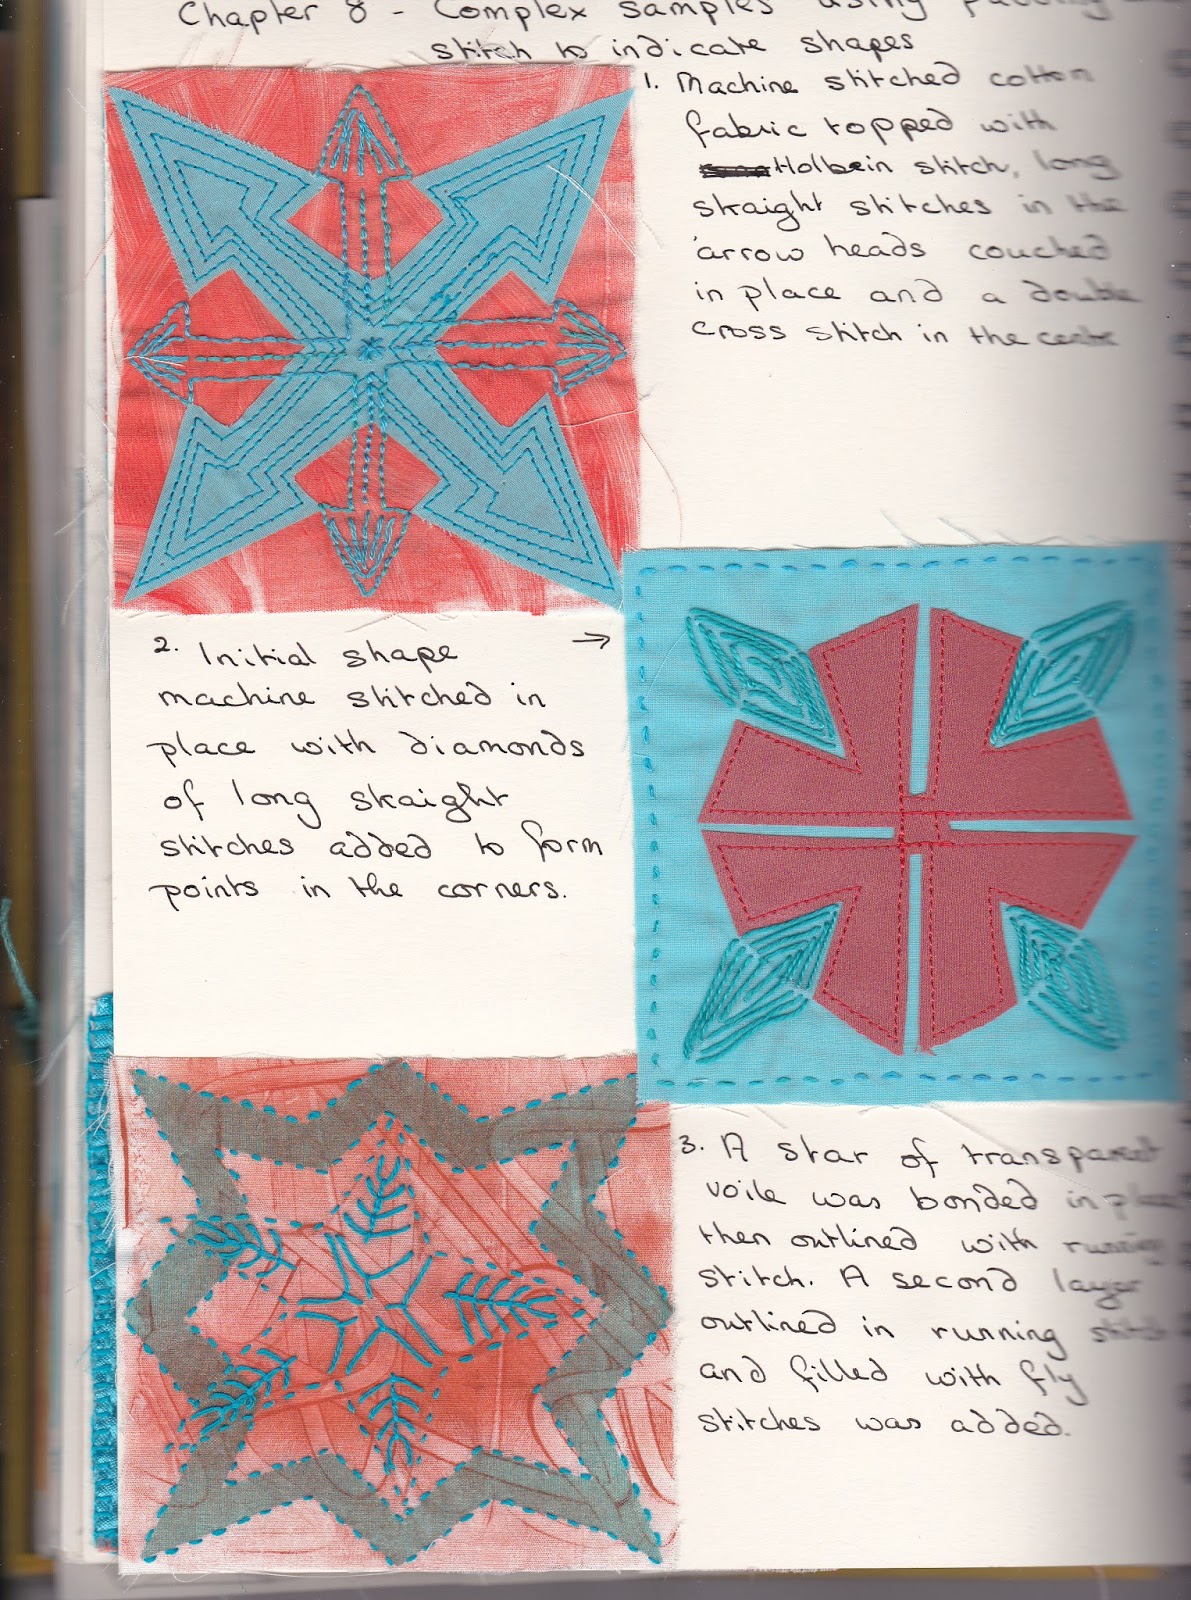 Chapter 8 - Complex samples using
stitch to indicate shapes
1. Machine stitched cotton
fabric topped with
Holbein stitch, long
straight stitches in the
'arrow heads couched
in place and a double
cross stitch in the centre
2. Initial shape →
machine stitched in
place with diamonds
of long straight
stitches added to form
points in the corners.
3. A star of transparent
voile was bonded in place
then outlined with running
stitch. A second layer
outlined in running stitch
and filled with fly
stitches was added.